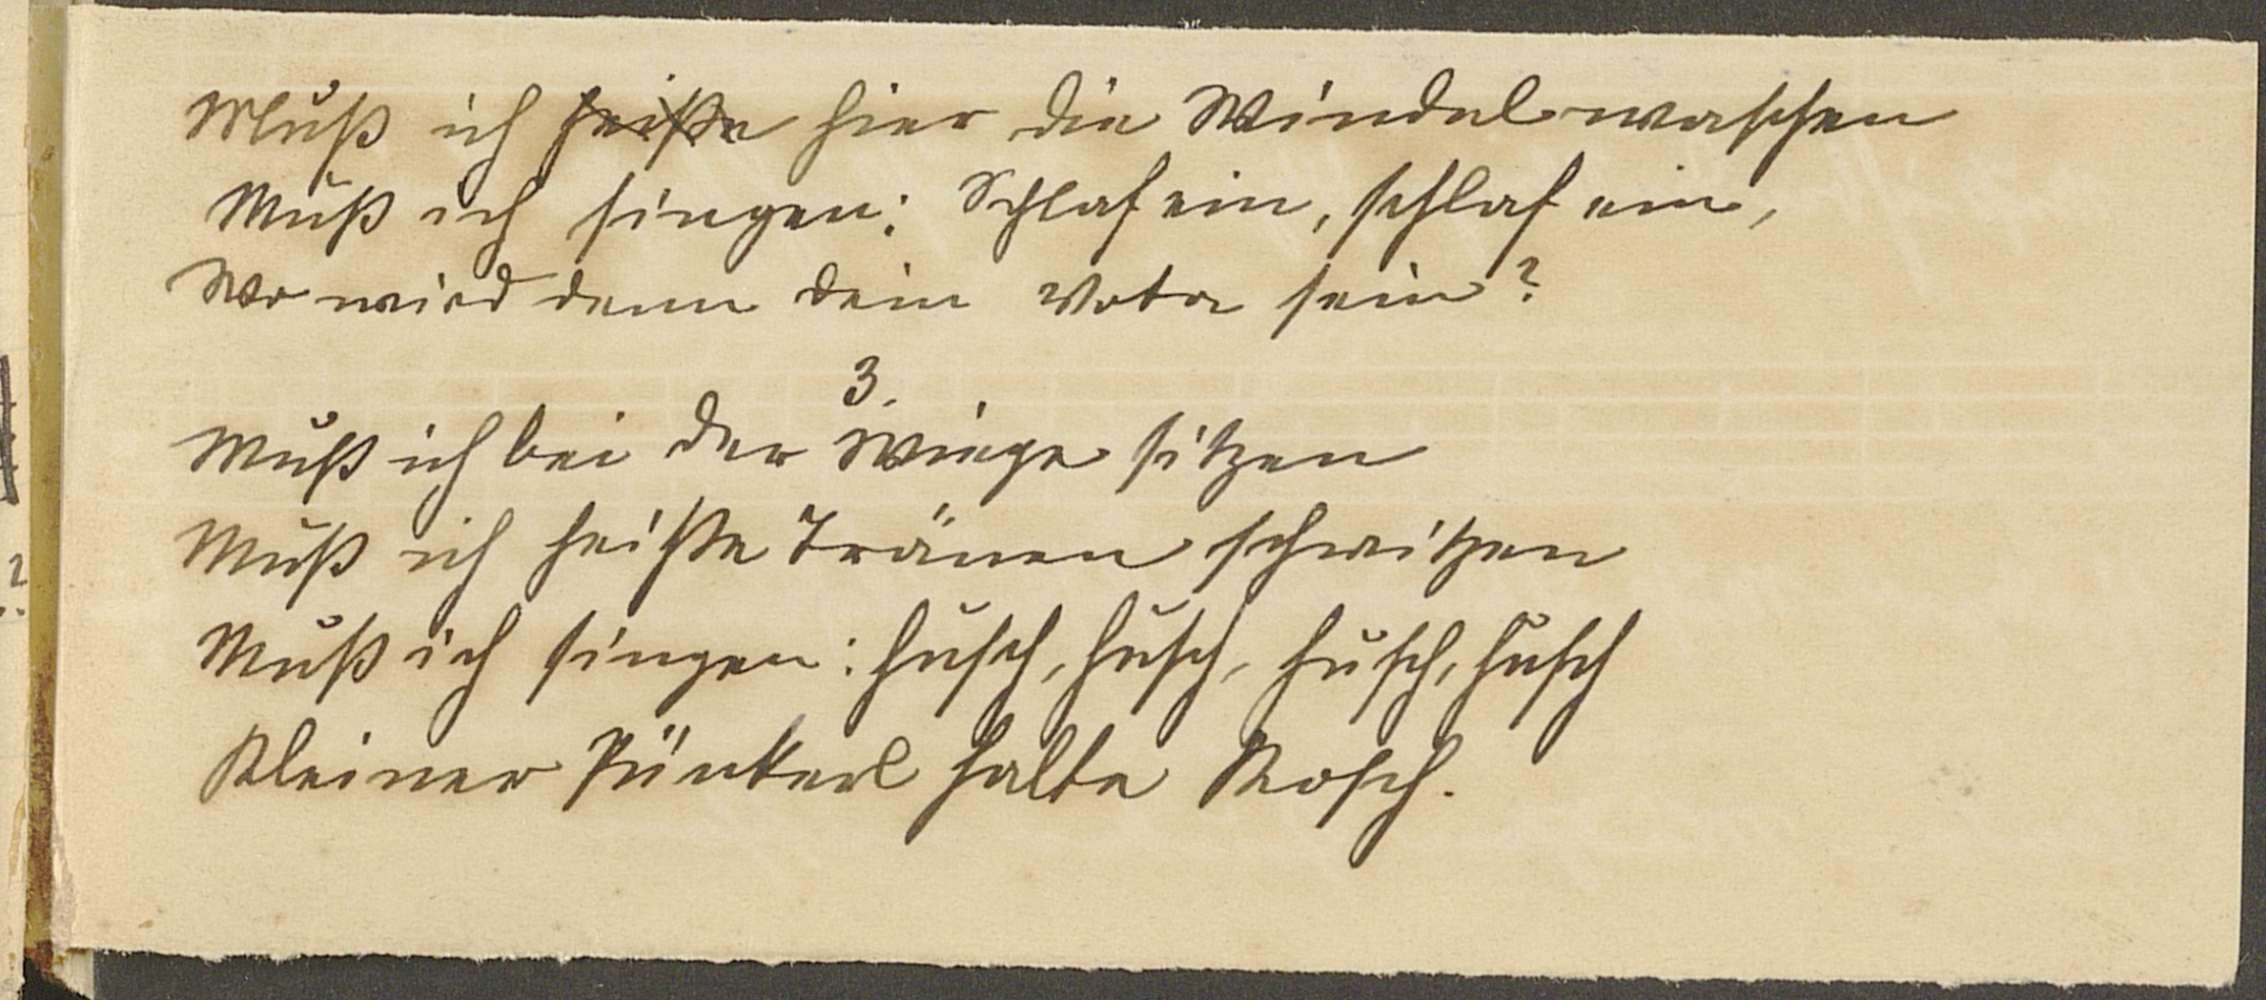 Muß ich heiße hier die Windel waschen
Muß ich singen: Schlaf ein, schlaf ein,
Wo wird denn dein Vota sein?
3.
Muß ich bei der Wiege sitzen
Muß ich heiße Tränen schwitzen
Muß ich singen: husch, husch, husch, husch
Kleiner Pünkerl halte